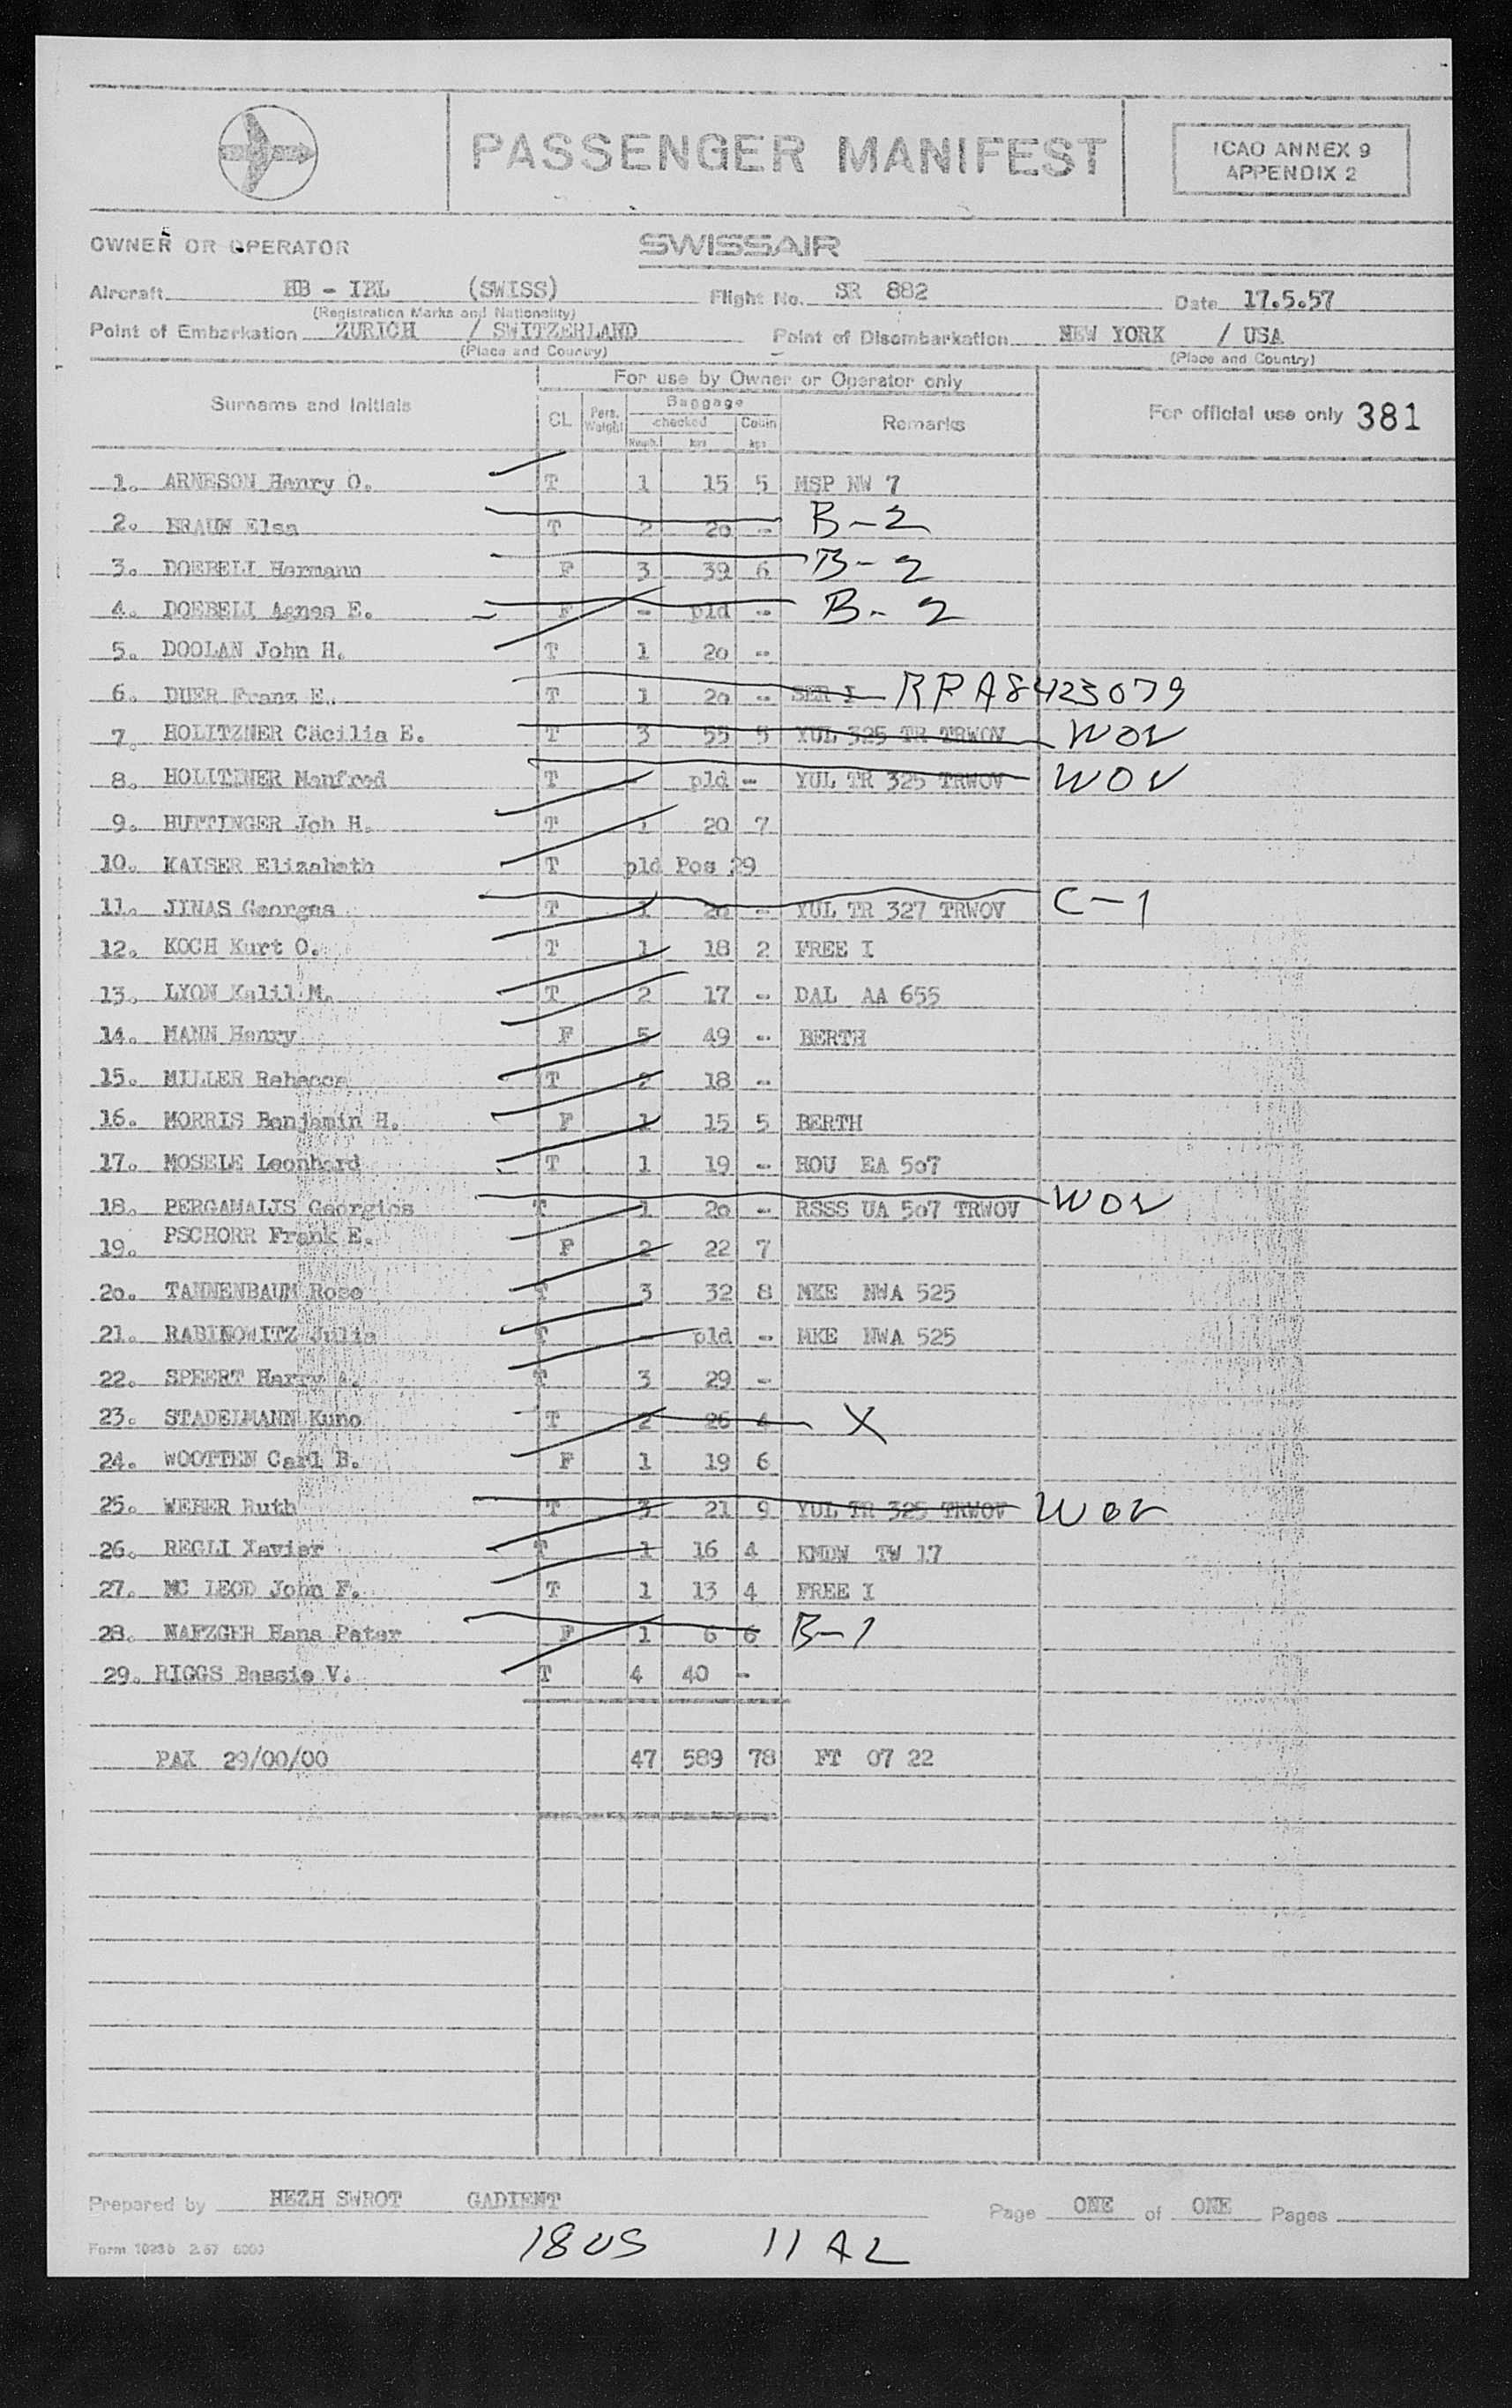 PASSENGER MANIFEST
ICAO ANNEX 9
APPENDIX 2
OWNER OR OPERATOR SWISSAIR
Aircraft HB - IBL (SWISS) Flight No. SR 882 Date 17.5.57
(Registration Marks and Nationality)
Point of Embarkation ZURICH / SWITZERLAND Point of Disembarkation NEW YORK / USA
(Place and Country) (Place and Country)
For use by Owner or Operator only
Surname and Initials CL Pers. Weight Baggage checked Cabin kgs kgs Remarks For official use only 381
1. ARNESON Henry O. T 1 15 5 MSP NW 7
2. BRAUN Elsa T 2 20 -- B-2
3. DOEBELI Hermann F 3 39 6 B-2
4. DOEBELI Agnes E. F - pld -- B-2
5. DOOLAN John H. T 1 20 --
6. DUER Franz E. T 1 20 -- SER I RPA8423079
7. HOLITZNER Cäcilia E. T 3 55 5 YUL 325 TR TRWOV WOV
8. HOLITZNER Manfred T - pld - YUL TR 325 TRWOV WOV
9. HUTTINGER Joh H. T 1 20 7
10. KAISER Elizabeth T pld Pos 29
11. JINAS Georges T 1 20 -- YUL TR 327 TRWOV C-1
12. KOCH Kurt O. T 1 18 2 FREE I
13. LYON Kalil M. T 2 17 -- DAL AA 655
14. MANN Henry F 5 49 -- BERTH
15. MILLER Rebecca T 2 18 --
16. MORRIS Benjamin H. F 1 15 5 BERTH
17. MOSELE Leonhard T 1 19 -- HOU EA 507
18. PERGAMALIS Georgios T 1 20 -- RSSS UA 507 TRWOV WOV
19. PSCHORR Frank E. F 2 22 7
20. TANNENBAUM Rose T 3 32 8 MKE NWA 525
21. RABINOWITZ Julia T - pld -- MKE NWA 525
22. SPEERT Harry A. T 3 29 -
23. STADELMANN Kuno T 2 26 4 X
24. WOOTTEN Carl B. F 1 19 6
25. WEBER Ruth T 3 21 9 YUL TR 325 TRWOV WOV
26. REGLI Xavier T 1 16 4 KMDW TW 17
27. MC LEOD John F. T 1 13 4 FREE I
28. NAFZGER Hans Peter F 1 6 6 B-1
29. RIGGS Bessie V. T 4 40 -
PAX 29/00/00 47 589 78 FT 07 22
Prepared by HEZH SWROT GADIENT Page ONE of ONE Pages
Form 1023b 2.57 5000
18 US 11 AL